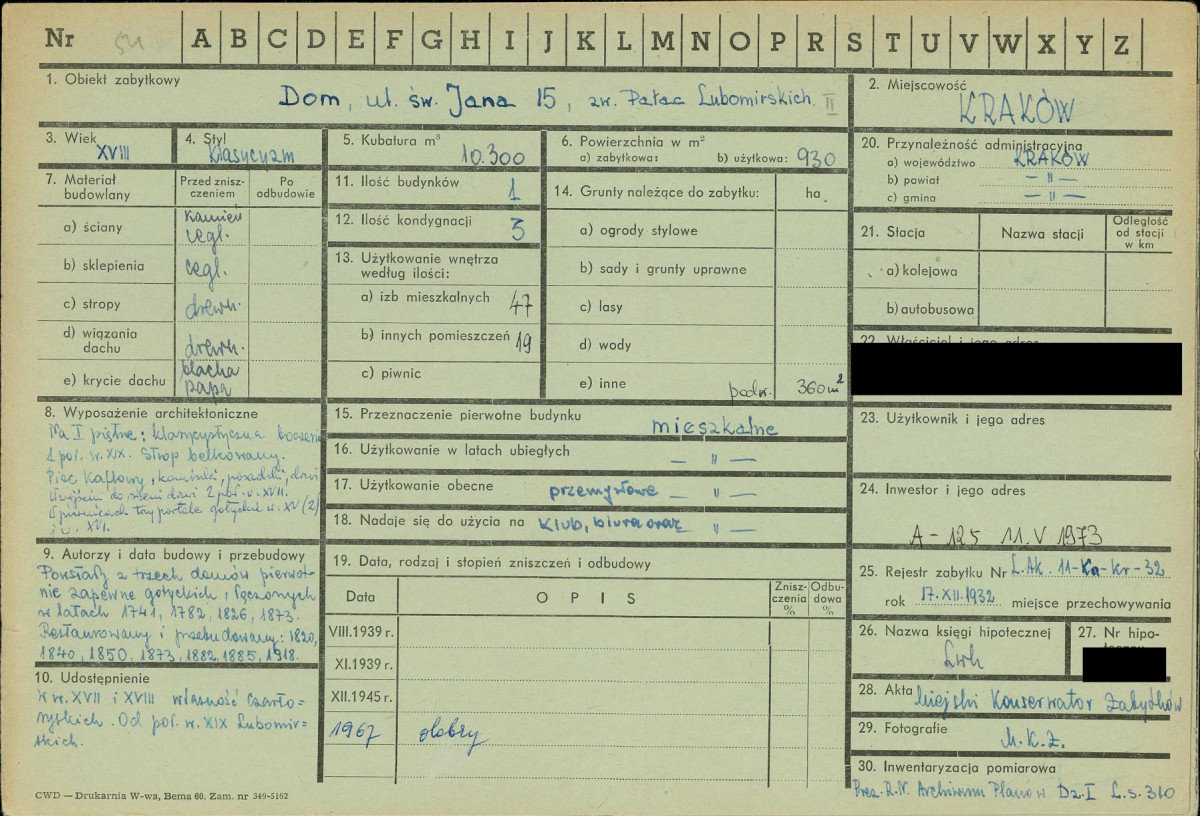 Nr 54 A B C D E F G H I J K L M N O P R S T U V W X Y Z
1. Obiekt zabytkowy
Dom, ul. św. Jana 15, zw. Pałac Lubomirskich. II
2. Miejscowość
KRAKÓW
3. Wiek
XVIII
4. Styl
klasycyzm
5. Kubatura m³
10.300
6. Powierzchnia w m²
a) zabytkowa: b) użytkowa: 930
20. Przynależność administracyjna
a) województwo KRAKÓW
b) powiat — " —
c) gmina — " —
7. Materiał budowlany
Przed zniszczeniem
Po odbudowie
a) ściany kamień cegł.
b) sklepienia cegł.
c) stropy drewn.
d) wiązania dachu drewn.
e) krycie dachu blacha papa
11. Ilość budynków 1
12. Ilość kondygnacji 3
13. Użytkowanie wnętrza według ilości:
a) izb mieszkalnych 47
b) innych pomieszczeń 19
c) piwnic
14. Grunty należące do zabytku: ha
a) ogrody stylowe
b) sady i grunty uprawne
c) lasy
d) wody
e) inne podw. 360 m²
21. Stacja
Nazwa stacji
Odległość od stacji w km
a) kolejowa
b) autobusowa
22. Właściciel i jego adres
8. Wyposażenie architektoniczne
Na I piętrze: klasycystyczna
1 poł. w. XIX. Strop belkowany.
Piec kaflowy, kominki, posadzki, drzwi
W wejściu do sieni drzwi 2 poł. w. XVII.
W piwnicach trzy portale gotyckie w. XV (2)
i w. XVI.
15. Przeznaczenie pierwotne budynku mieszkalne
16. Użytkowanie w latach ubiegłych — " —
17. Użytkowanie obecne przemysłowe — " —
18. Nadaje się do użycia na klub, biura oraz — " —
23. Użytkownik i jego adres
24. Inwestor i jego adres
A-125 11.V 1973
9. Autorzy i data budowy i przebudowy
Powstały z trzech domów pierwot-
nie zapewne gotyckich, łączonych
w latach 1741, 1782, 1826, 1873.
Restaurowany i przebudowany: 1820,
1840, 1850, 1873, 1882, 1885, 1918.
19. Data, rodzaj i stopień zniszczeń i odbudowy
Data
OPIS
Zniszczenia %
Odbudowa %
VIII.1939 r.
XI.1939 r.
XII.1945 r.
1967 dobry
25. Rejestr zabytku Nr L.Ak. 11-Ka-Kr-32
rok 17.XII.1932 miejsce przechowywania
26. Nazwa księgi hipotecznej
Lwh
27. Nr hipo-
10. Udostępnienie
W w. XVII i XVIII własność Czarto=
ryskich. Od poł. w. XIX Lubomir=
skich.
28. Akta Miejski Konserwator Zabytków
29. Fotografie
M.K.Z.
30. Inwentaryzacja pomiarowa
Prez. R.N. Archiwum Planów Dz.I L.s. 310
CWD — Drukarnia W-wa, Bema 60. Zam. nr 349-5162